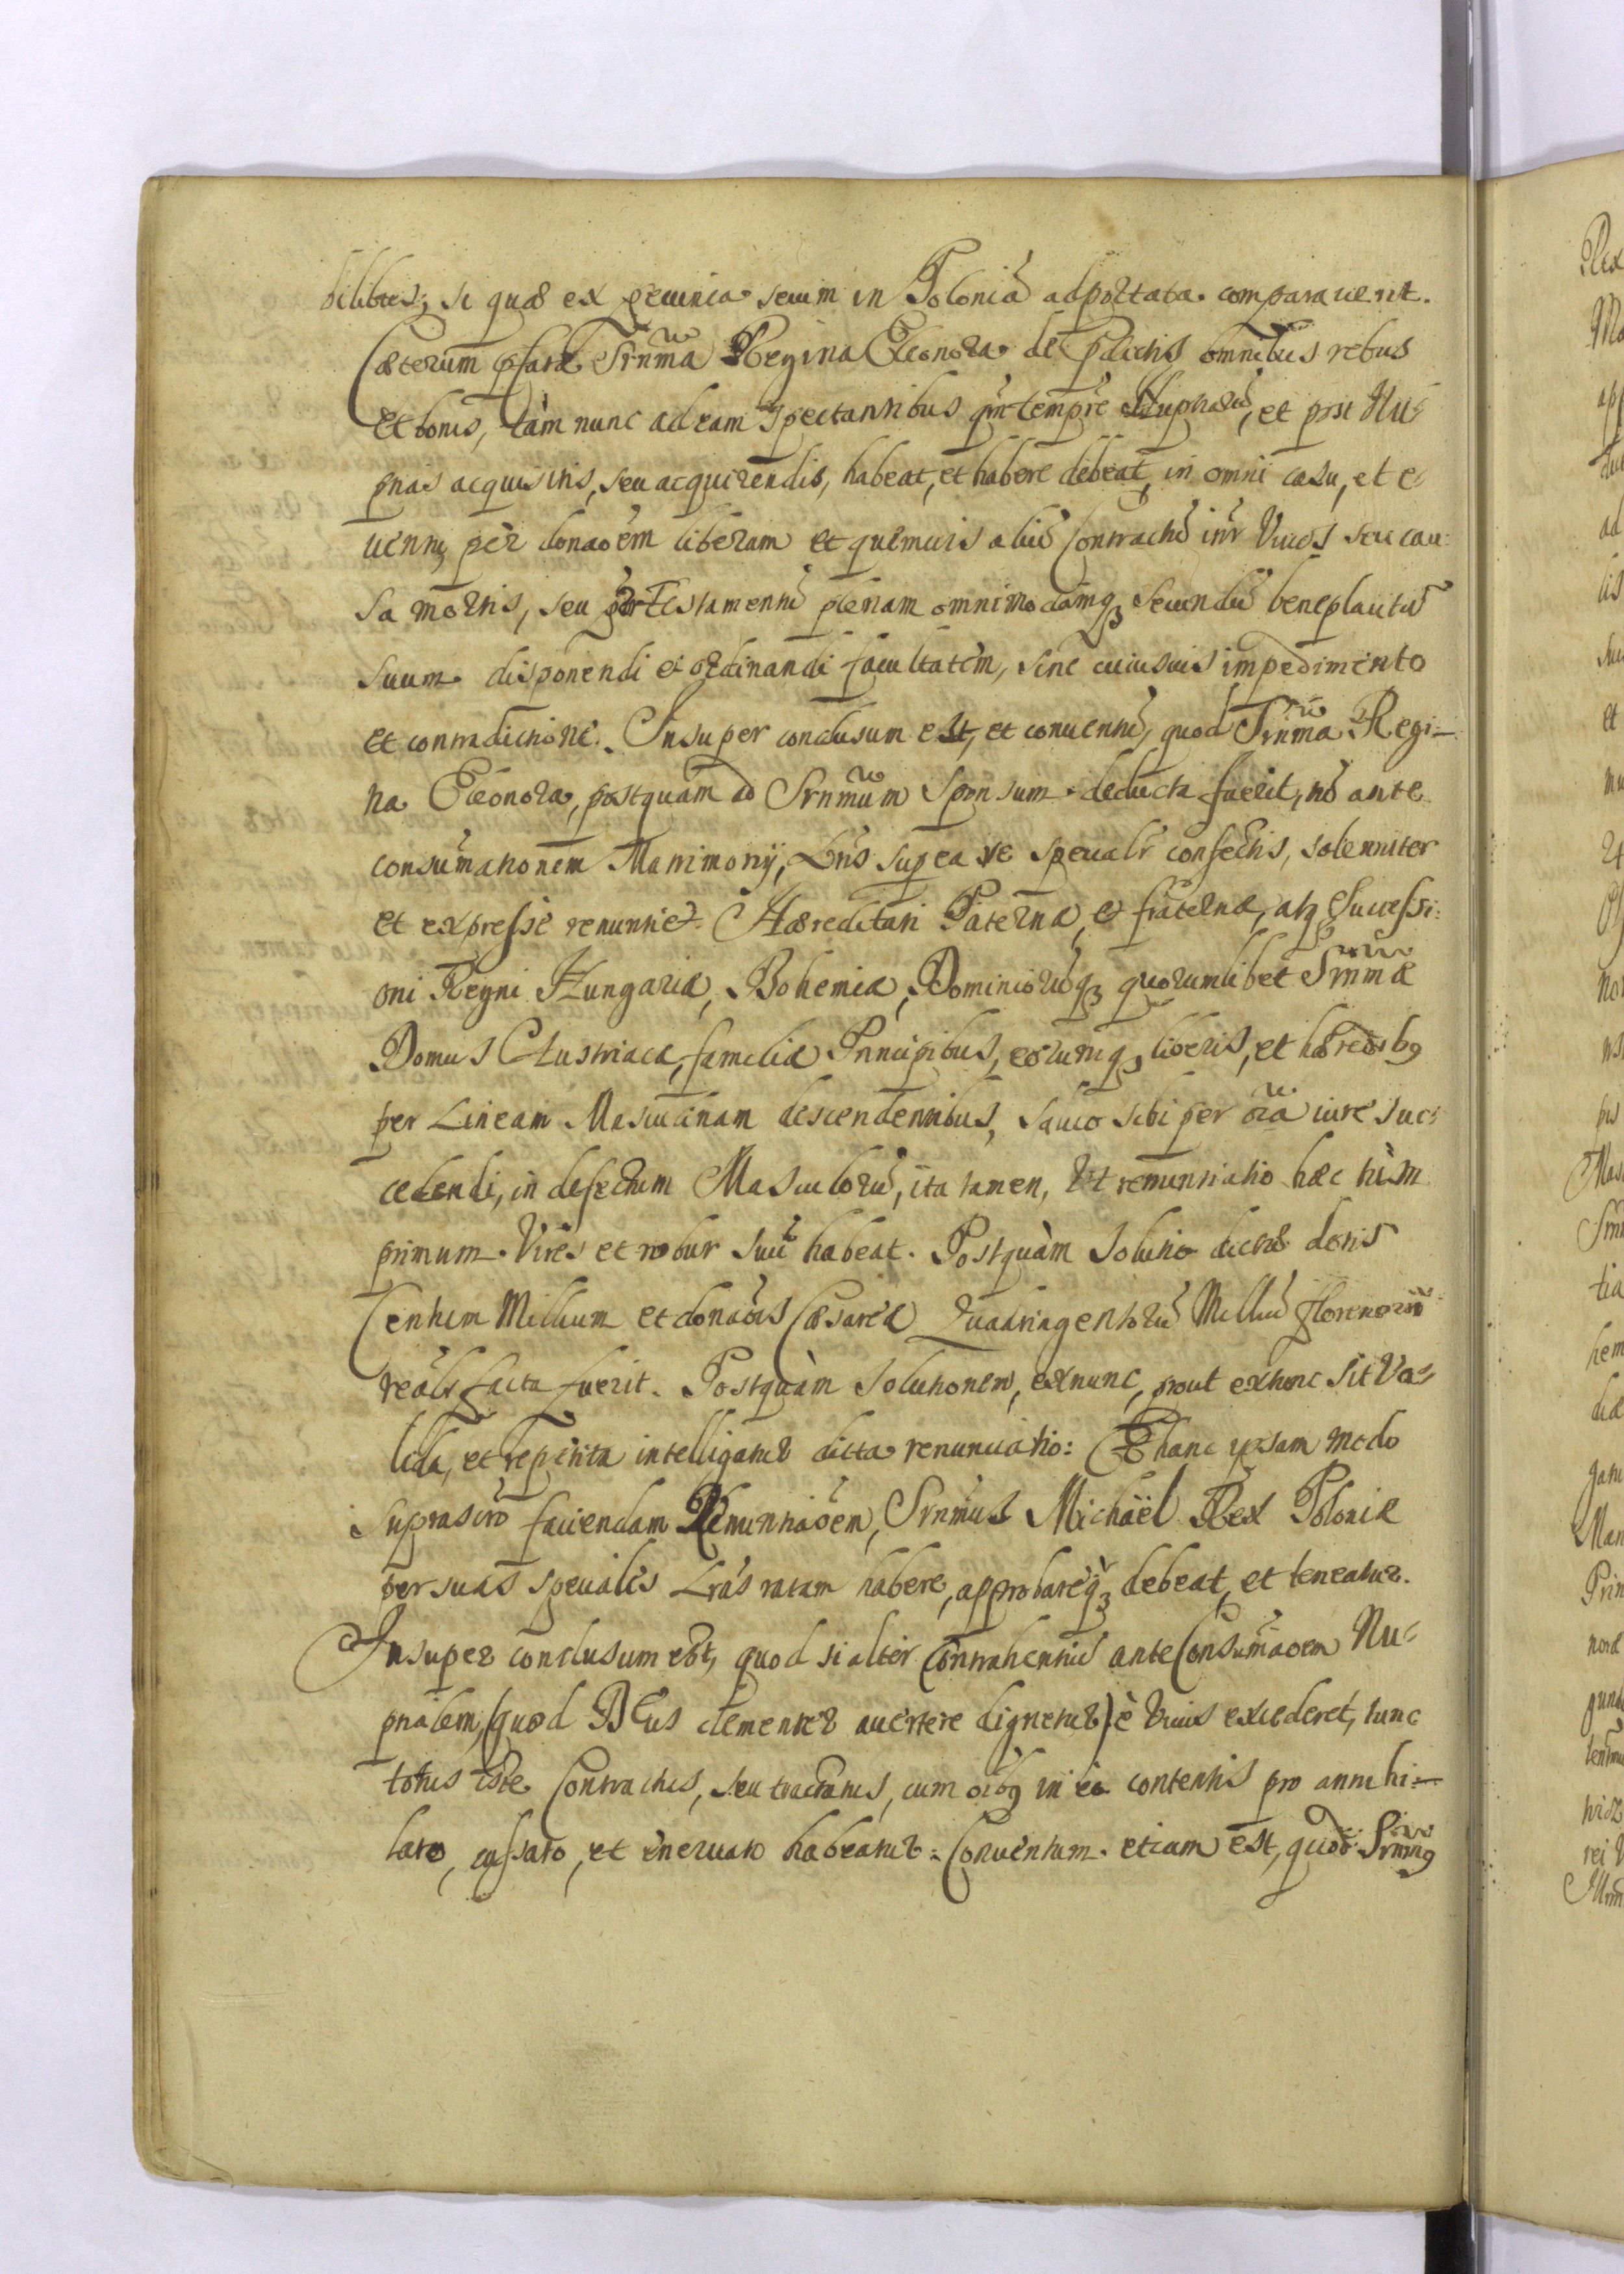 bilibus; si quæ ex pecunia secum in Poloniã adportata comparauerit.
Cæterum pfata Srnma Regina Eleonora de pdictis omnibus rebus
et bonis, tàm nunc ad eam spectantibus qm tempre Nuptiarũ, et post Nu-
ptias acquisitis, seu acquirendis, habeat, et habere debeat, in omni casu, et e-
uentu, per donaõem liberam et quemuis aliũ Contractũ intr Viuos seu cau-
sa mortis, seu per Testamentũ plenam omnimodamq3 secundũ beneplacitũ
suum disponendi et ordinandi facultatem, sine cuiusuis impedimento
et contradictione. Insuper conclusum est, et conuentũ, quod Srnma Regi-
na Eleonora, postquam ad Srnmum Sponsum deducta fuerit, nõ ante
consũmationem Matrimonij, Lris sup ea re specialr confectis, solenniter
et expresse renuntiet Hæreditati Paternæ, et fraternæ, atq3 Successi-
oni Regni Hungariæ, Bohemiæ, Dominiorũq3 quorumlibet Srnmæ
Domus Austriacæ, familiæ Principibus, eorumq3 liberis, et hæredibq
per Lineam Masculinam descendentibus, saluo sibi per oia iure suc-
cedendi, in defectum Masculorũ, ita tamen, Vt renuntiatio hæc tùm
primum Vires et robur suũ habeat. Postquàm solutio dictæ dotis
Centum Millium et donaõis Cæsareæ Quadringentorũ Milliũ florenorũ
realr facta fuerit. Postquàm solutionem, ex nunc, prout ex tunc sit Va-
lida, et repetita intelligatur dicta renunciatio: Et hanc ipsam modo
suprascro faciendam Renuntiaõem, Srnmus Michaël Rex Poloniæ
per suas speciales Lras ratam habere, approbareq3 debeat, et teneatur.
Insuper conclusum est, quod si alter Contrahentiũ ante Consũmaõem Nu-
ptialem, (quod Deus clementer auertere dignetur) è Viuis excederet, tunc
totus iste Contractus, seu tractatus, cum oibq in eo contentis pro annihi-
lato, cassato, et eneruato habeatur. Conuentum etiam est, quod Srnmq